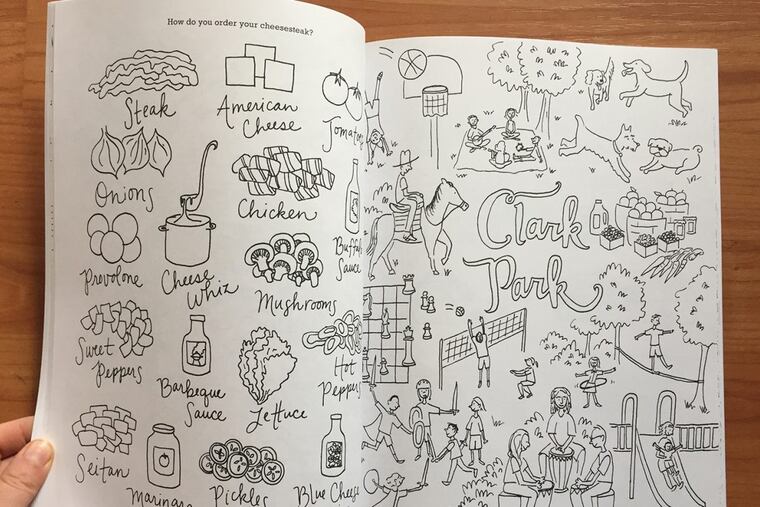 How do you order your cheesesteak?
Steak
American
Cheese
Tomatoes
Onions
Chicken
Provolone
Cheese
Whiz
Buffalo
Sauce
Mushrooms
Sweet
Peppers
Barbeque
Sauce
Lettuce
Hot
Peppers
Seitan
Marinara
Pickles
Blue Cheese
Clark
Park